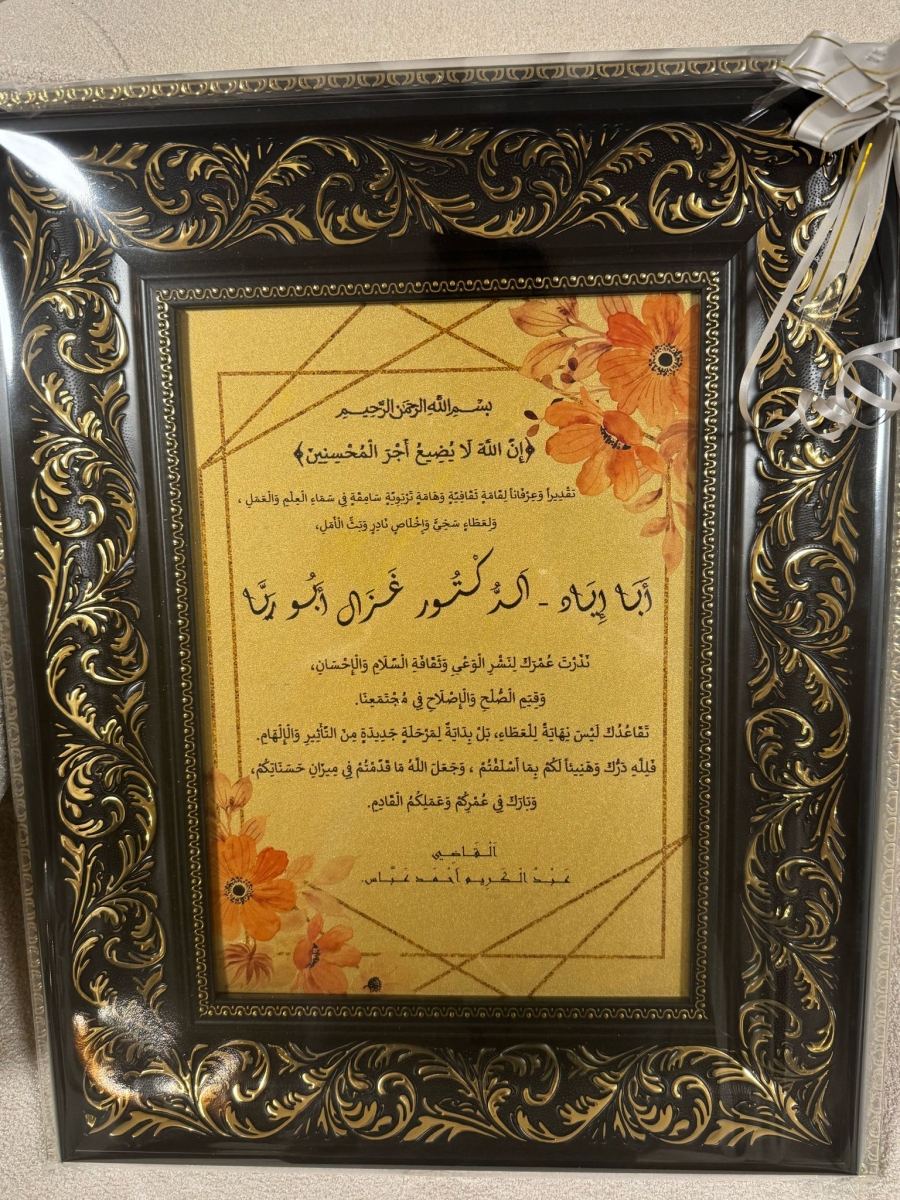 بسم الله الرحمن الرحيم
﴿إِنَّ اللَّهَ لَا يُضِيعُ أَجْرَ الْمُحْسِنِينَ﴾
تَقْدِيراً وَعِرْفَاناً لِقَامَةٍ ثَقَافِيَّةٍ وَهَامَةٍ تَرْبَوِيَّةٍ سَامِقَةٍ فِي سَمَاءِ الْعِلْمِ وَالْعَمَلِ ،
وَلِعَطَاءٍ سَخِيٍّ وَإِخْلَاصٍ نَادِرٍ وَبَثِّ الْأَمَلِ،
أَبَا إِيَاد - الدُّكْتُور غَزَال أَبُو رَيَّا
نَذَرْتَ عُمْرَكَ لِنَشْرِ الْوَعْيِ وَثَقَافَةِ السَّلَامِ وَالْإِحْسَانِ،
وَقِيَمِ الصُّلْحِ وَالْإِصْلَاحِ فِي مُجْتَمَعِنَا.
تَقَاعُدُكَ لَيْسَ نِهَايَةً لِلْعَطَاءِ، بَلْ بِدَايَةٌ لِمَرْحَلَةٍ جَدِيدَةٍ مِنَ التَّأْثِيرِ وَالْإِلْهَامِ.
فَلِلَّهِ دَرُّكَ وَهَنِيئاً لَكُمْ بِمَا أَسْلَفْتُمْ ، وَجَعَلَ اللَّهُ مَا قَدَّمْتُمْ فِي مِيزَانِ حَسَنَاتِكُمْ،
وَبَارَكَ فِي عُمْرِكُمْ وَعَمَلِكُمُ الْقَادِمِ.
الْقَاضِي
عَبْدُ الْكَرِيم أَحْمَد عَبَّاس.